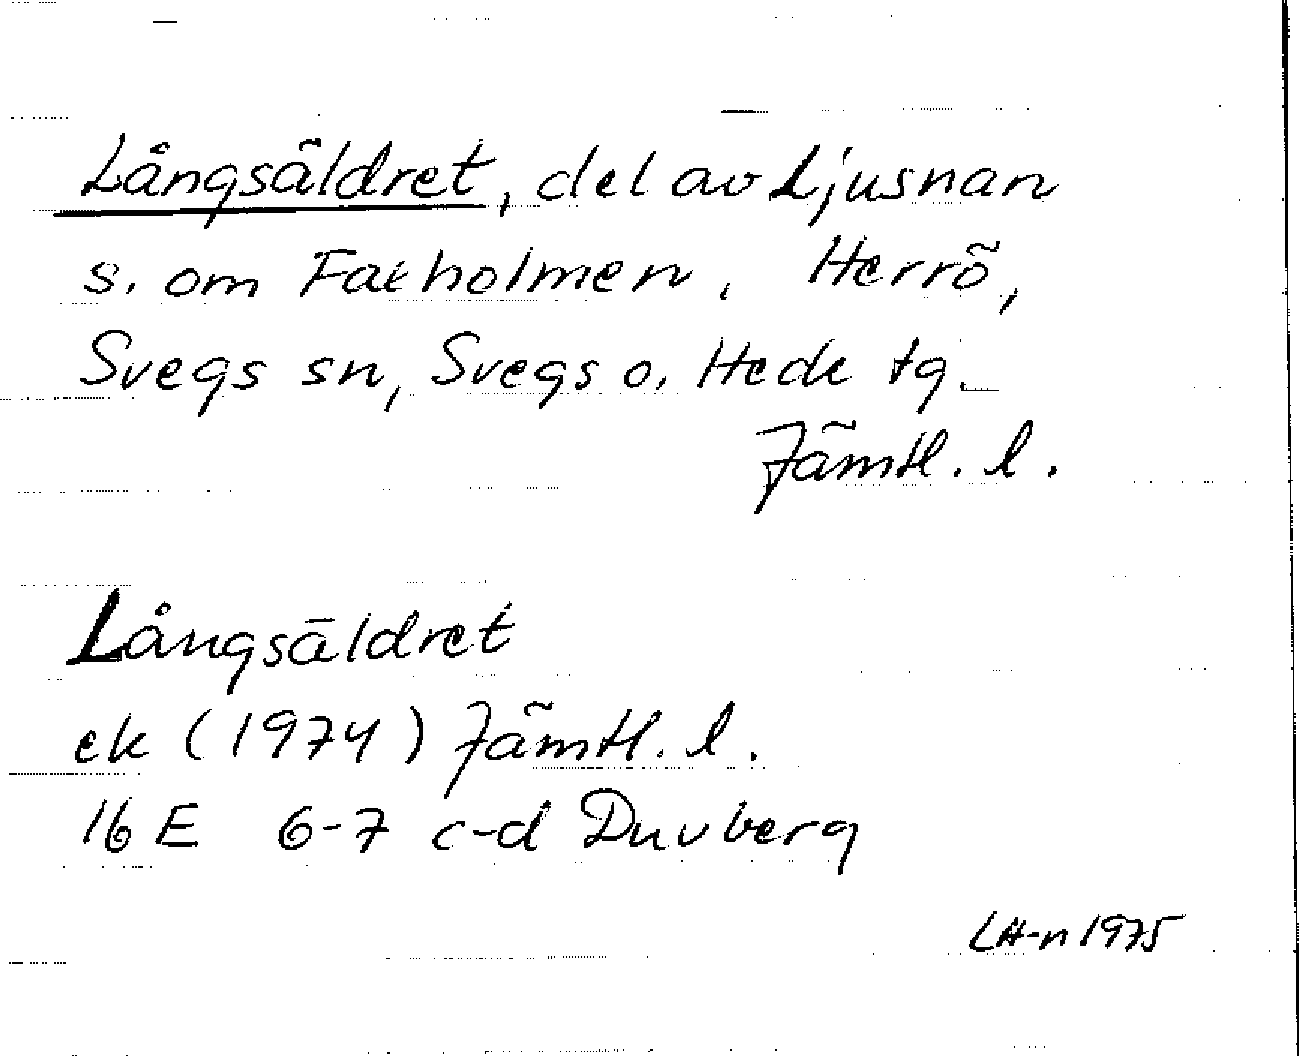 Långsäldret, del av Ljusnan
s. om Fatholmen, Herrö,
Svegs sn, Svegs o. Hede tg.
Jämtl. l.
Långsäldret
ek (1974) Jämtl. l.
16 E 6-7 c-d Duvberg
LH-n 1975